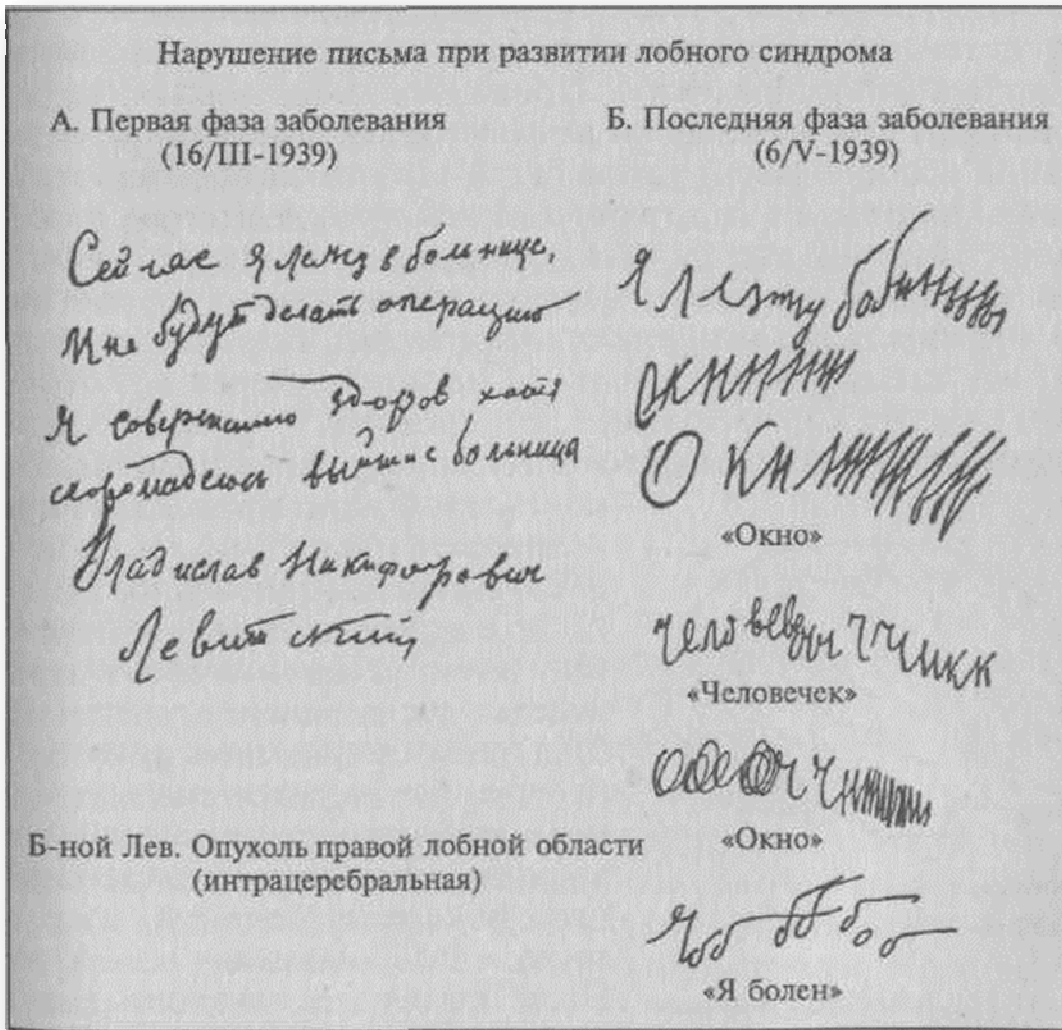 Нарушение письма при развитии лобного синдрома
А. Первая фаза заболевания
(16/III-1939)
Сейчас я лежу в больнице,
Мне будут делать операцию
Я совершенно здоров хотя
скоро надеюсь выйти с больница
Владислав Никифорович
Левитский
Б-ной Лев. Опухоль правой лобной области
(интрацеребральная)
Б. Последняя фаза заболевания
(6/V-1939)
Я лежу
«Окно»
«Человечек»
«Окно»
Я
«Я болен»